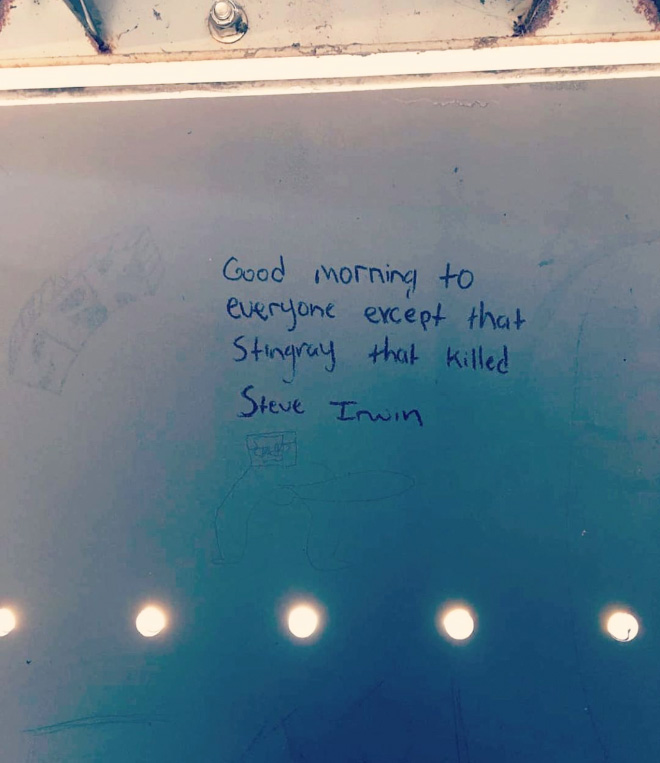 Good morning to
everyone except that
Stingray that killed
Steve Irwin